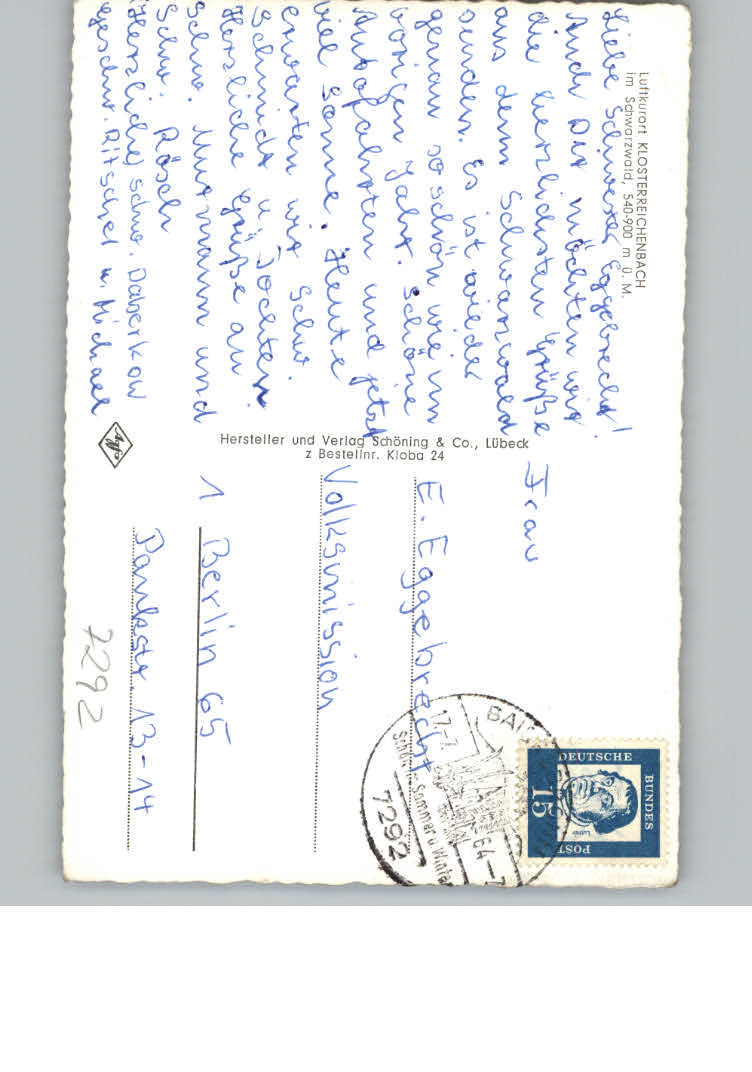 Luftkurort KLOSTERREICHENBACH
im Schwarzwald, 540-900 m ü. M.
Liebe Schwester Eggebrecht!
Auch Dir möchten wir
die herzlichsten Grüße
aus dem Schwarzwald
senden. Es ist wieder
genau so schön wie im
vorigen Jahr. Schöne
Autofahrten und jetzt
viel Sonne. Heute
erwarten wir Schw.
Schmidt u Tochter.
Herzliche Grüße an
Schw. Murmann und
Schw. Rösch
(Herzliche) Schw. Daberkow
Geschw. Ritschel u. Michael
Agfa
Hersteller und Verlag Schöning & Co., Lübeck
z Bestellnr. Kloba 24
Frau
E. Eggebrecht
Volksmission
1 Berlin 65
Pankstr. 13-14
7292
DEUTSCHE
BUNDES
POST
15
Luther
BAI
17.-7.
64-7
Sommer u Winter
7292